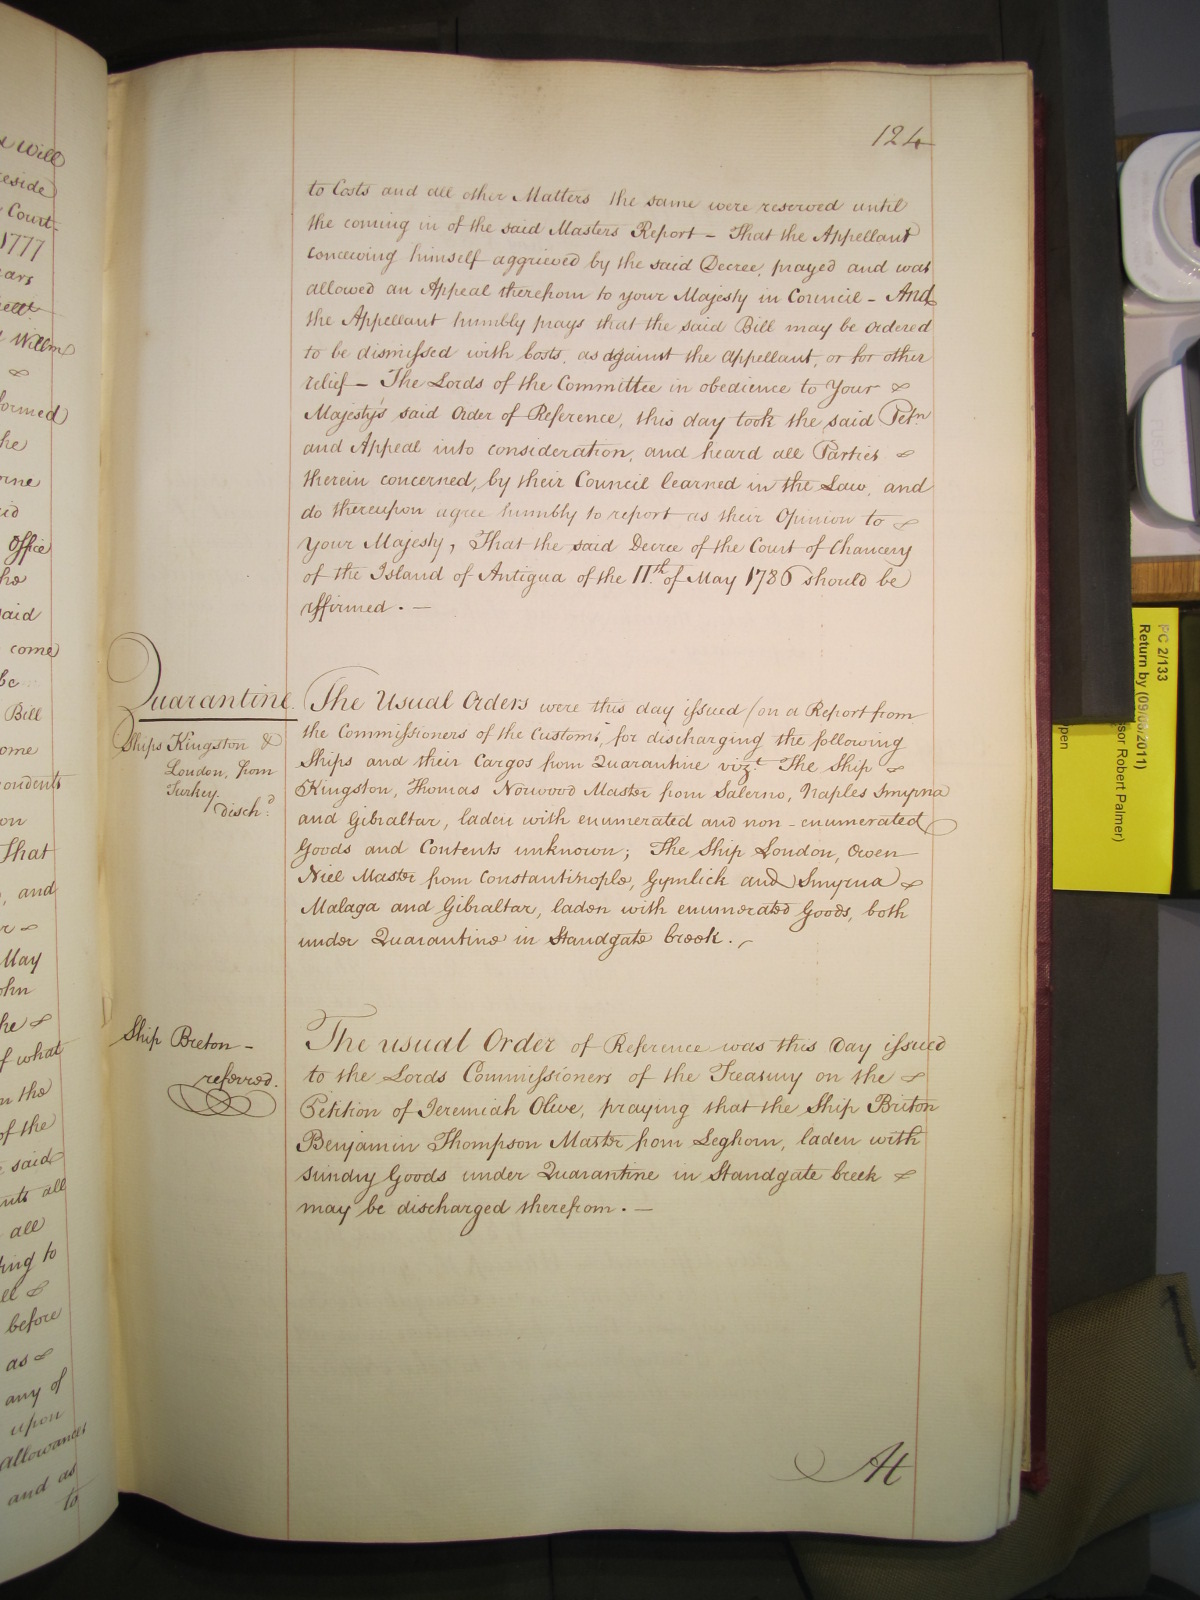 124
to Costs and all other Matters the same were reserved until
the coming in of the said Masters Report – That the Appellant
conceiving himself aggrieved by the said Decree, prayed and was
allowed an Appeal therefrom to your Majesty in Council – And
the Appellant humbly prays that the said Bill may be ordered
to be dismissed with Costs, as against the appellant, or for other
relief – The Lords of the Committee in obedience to Your
Majesty's said Order of Reference, this day took the said Petn
and Appeal into consideration, and heard all Parties
therein concerned, by their Council learned in the Law, and
do thereupon agree humbly to report as their Opinion to
Your Majesty, That the said Decree of the Court of Chancery
of the Island of Antigua of the 11th of May 1786 should be
affirmed. –
Quarantine.
Ships Kingston &
London, from
Turkey
disch:d
The Usual Orders were this day issued (on a Report from
the Commissioners of the Customs, for discharging the following
Ships and their Cargos from Quarantine vizt. The Ship
Kingston, Thomas Norwood Master from Salerno, Naples Smyrna
and Gibraltar, laden with enumerated and non-enumerated
Goods and Contents unknown; The Ship London, Owen
Niel Master from Constantinople, Gymlick and Smyrna
Malaga and Gibraltar, laden with enumerated Goods, both
under Quarantine in Standgate Creek. –
Ship Breton –
referred.
The usual Order of Reference was this Day issued
to the Lords Commissioners of the Treasury on the
Petition of Jeremiah Olive, praying that the Ship Briton
Benjamin Thompson Master from Leghorn, laden with
sundry Goods under Quarantine in Standgate Creek
may be discharged therefrom. –
At
Will
reside
Court
1777
Willm
formed
Office
said
come
Bill
That
, and
May
John
of what
in the
of the
said
all
all
to
before
as
any of
upon
allowances
and as
to
PC 2/133
Return by (09/06/2011)
sor Robert Palmer)
pen